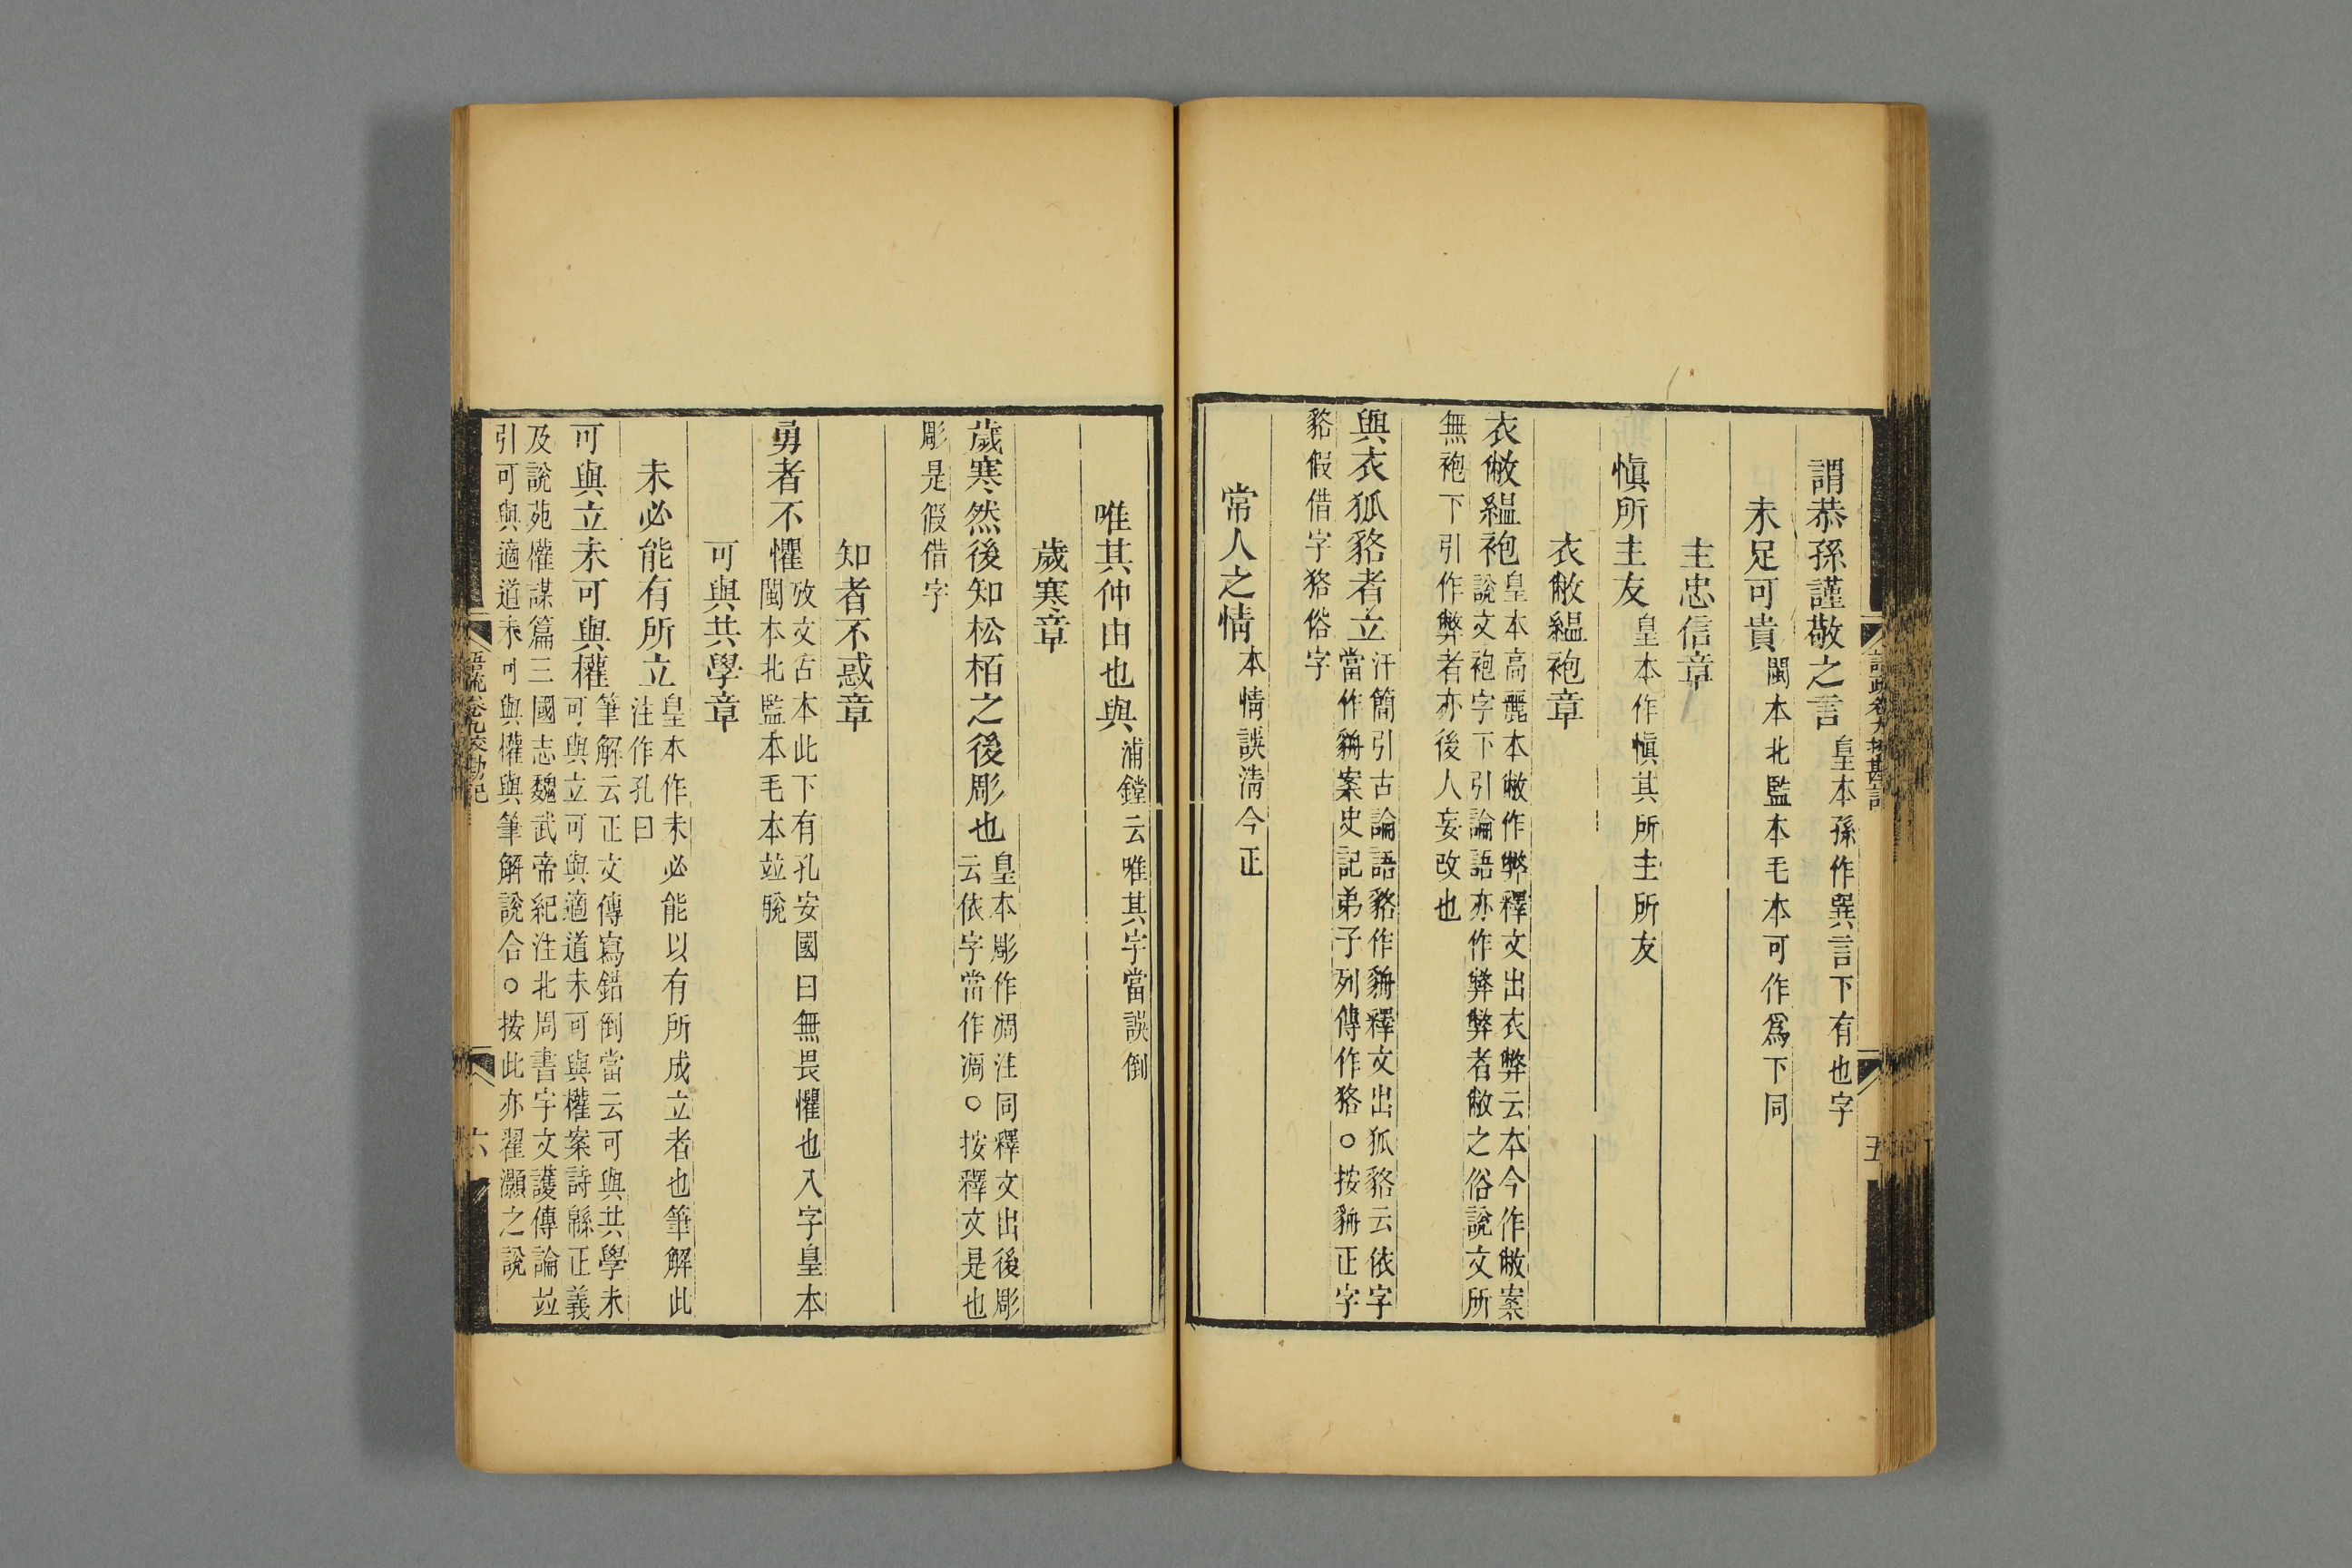 謂恭孫謹敬之言皇本孫作巽言下有也字
未足可貴閩本北監本毛本可作爲下同
主忠信章
愼所主友皇本作愼其所主所友
衣敝縕袍章
衣敝縕袍皇本高麗本敝作弊釋文出衣弊云本今作敝案
說文袍字下引論語亦作弊弊者敝之俗說文所
無袍下引作弊者亦後人妄改也
與衣狐貉者立汗簡引古論語貉作貈釋文出狐貉云依字
當作貈案史記弟子列傳作狢○按貈正字
貉假借字狢俗字
常人之情本情誤淸今正
唯其仲由也與浦鏜云唯其字當誤倒
歲寒章
歲寒然後知松栢之後彫也皇本彫作凋注同釋文出後彫
云依字當作凋○按釋文是也
彫是假借字
知者不惑章
勇者不懼攷文古本此下有孔安國曰無畏懼也八字皇本
閩本北監本毛本竝脫
可與共學章
未必能有所立皇本作未必能以有所成立者也筆解此
注作孔曰
可與立未可與權筆解云正文傳寫錯倒當云可與共學未
可與立可與適道未可與權案詩緜正義
及說苑權謀篇三國志魏武帝紀注北周書宇文護傳論竝
引可與適道未可與權與筆解說合○按此亦翟灝之說
語疏卷九校勘記
六